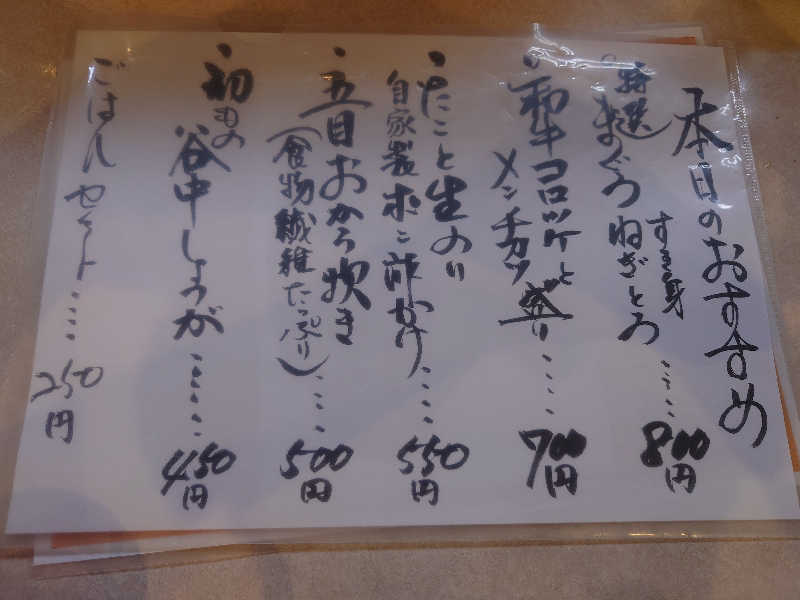 本日のおすすめ
・特選まぐろ
すき身
ねぎとろ……800円
・和牛コロッケと
メンチカツ盛り……700円
・たこと生のり
自家製ポン酢かけ……550円
・五目おから炊き
(食物繊維たっぷり)……500円
・初もの
谷中しょうが……450円
ごはんセット……250円